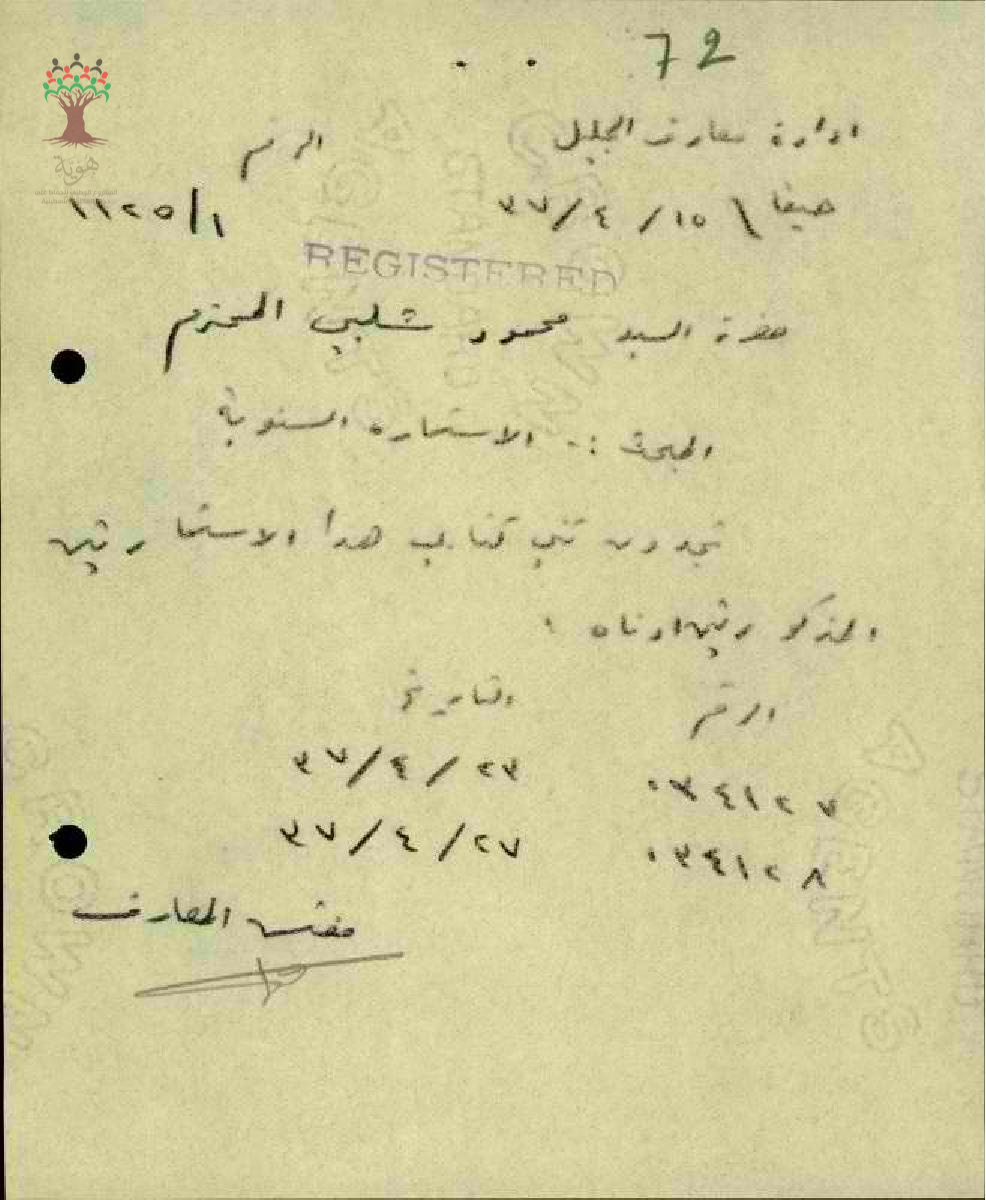 72
ادارة معارف الجليل
الرقم
حيفا \ ١٥ / ٤ / ٣٧
١١٢٥/١
REGISTERED
حضرة السيد محمود شلبي المحترم
المبحث :- الاستماره السنوية
تجدون طي كتابي هذا الاستمارتين
المذكورتين ادناه :
الرقم التاريخ
٠٣٤١٢٧ ٢٣ / ٤ / ٣٧
٠٣٤١٢٨ ٢٧ / ٤ / ٣٧
مفتش المعارف
هوية